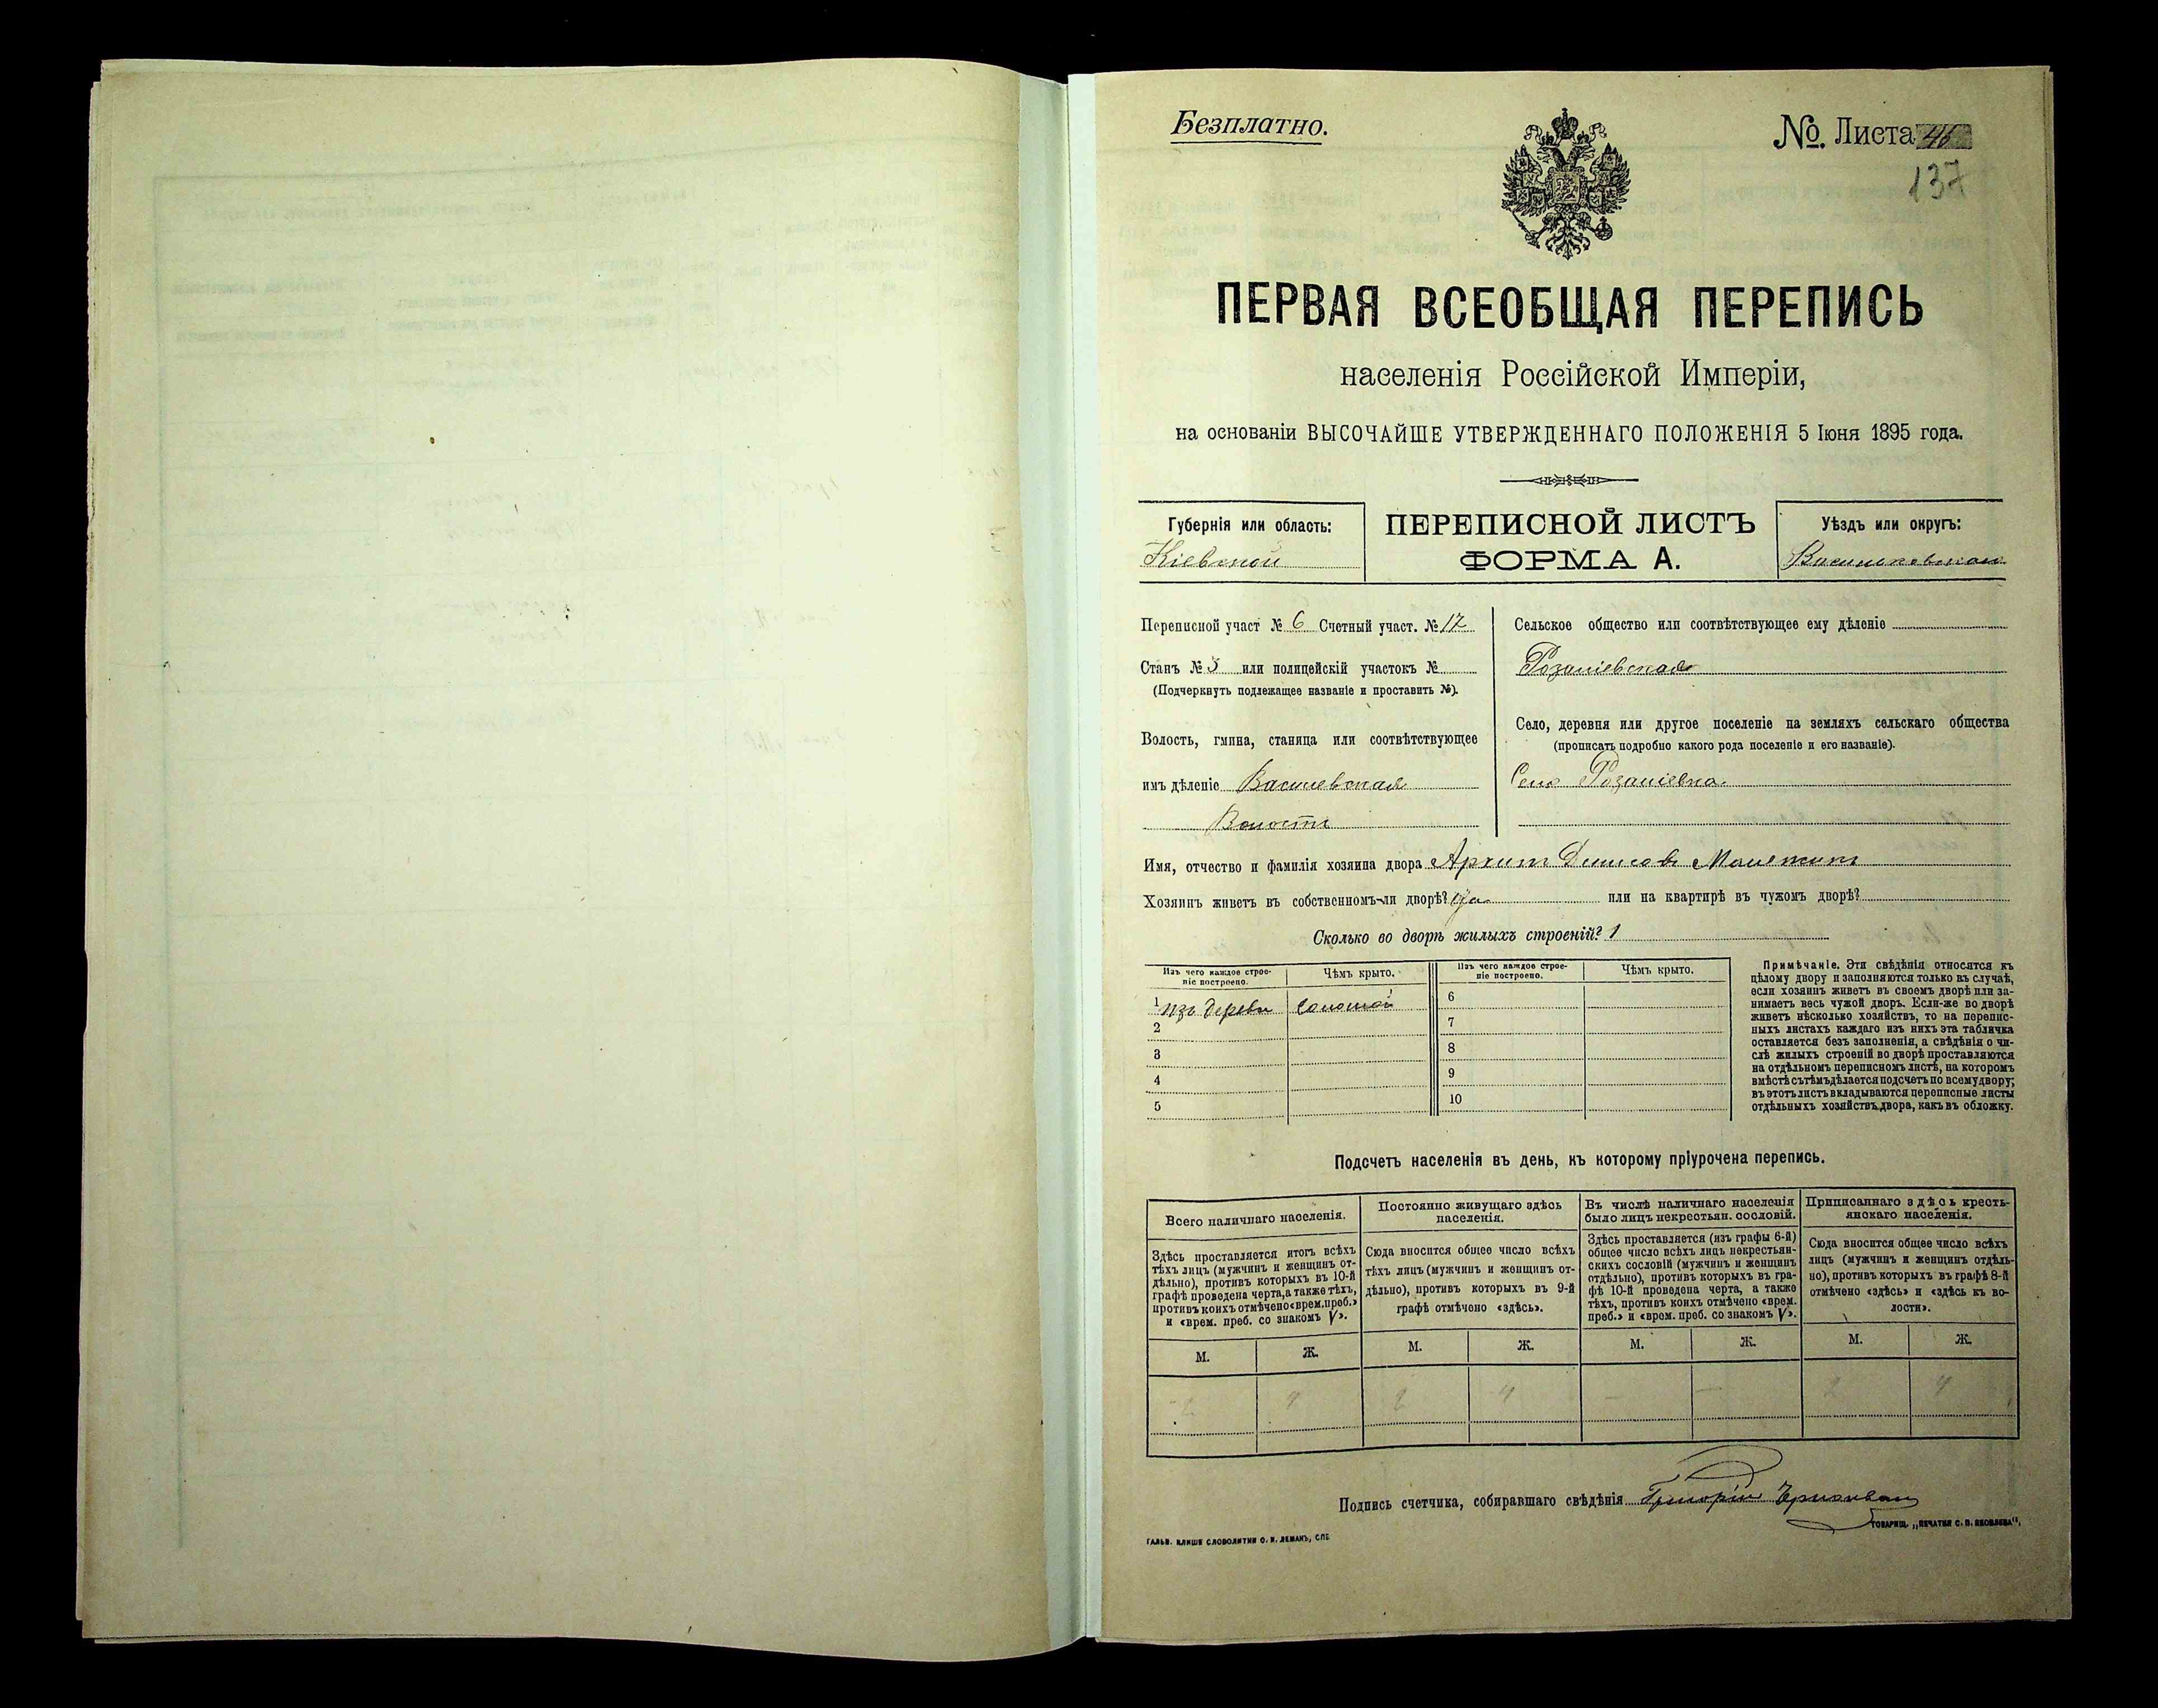 Безплатно.
№. Листа 46
137
ПЕРВАЯ ВСЕОБЩАЯ ПЕРЕПИСЬ
населенія Россійской Имперіи,
на основаніи ВЫСОЧАЙШЕ УТВЕРЖДЕННАГО ПОЛОЖЕНІЯ 5 Іюня 1895 года.
Губернія или область:
Кіевской
ПЕРЕПИСНОЙ ЛИСТЪ
ФОРМА А.
Уѣздъ или округъ:
Переписной участ № 6 Счетный участ. № 12
Станъ № 3 или полицейскій участокъ №
(Подчеркнуть подлежащее названіе и проставить №).
Волость, гмина, станица или соотвѣтствующее
имъ дѣленіе Василевская
Волость
Сельское общество или соотвѣтствующее ему дѣленіе
Село, деревня или другое поселеніе на земляхъ сельскаго общества
(прописать подробно какого рода поселеніе и его названіе).
Село
Имя, отчество и фамилія хозяина двора Архип Денисов
Хозяинъ живетъ въ собственномъ-ли дворѣ? да или на квартирѣ въ чужомъ дворѣ?
Сколько во дворѣ жилыхъ строеній? 1
Изъ чего каждое строе-
ніе построено.
Чѣмъ крыто.
Изъ чего каждое строе-
ніе построено.
Чѣмъ крыто.
1 изъ дерева соломой
2
3
4
5
6
7
8
9
10
Примѣчаніе. Эти свѣдѣнія относятся къ
цѣлому двору и заполняются только въ случаѣ,
если хозяинъ живетъ въ своемъ дворѣ или за-
нимаетъ весь чужой дворъ. Если-же во дворѣ
живетъ нѣсколько хозяйствъ, то на перепис-
ныхъ листахъ каждаго изъ нихъ эта табличка
оставляется безъ заполненія, а свѣдѣнія о чи-
слѣ жилыхъ строеній во дворѣ проставляются
на отдѣльномъ переписномъ листѣ, на которомъ
вмѣстѣ съ тѣмъ дѣлается подсчетъ по всему двору;
въ этотъ листъ вкладываются переписные листы
отдѣльныхъ хозяйствъ двора, какъ въ обложку.
Подсчетъ населенія въ день, къ которому пріурочена перепись.
Всего наличнаго населенія.
Здѣсь проставляется итогъ всѣхъ
тѣхъ лицъ (мужчинъ и женщинъ от-
дѣльно), противъ которыхъ въ 10-й
графѣ проведена черта, а также тѣхъ,
противъ коихъ отмѣчено «врем. преб.»
и «врем. преб. со знакомъ V».
Постоянно живущаго здѣсь
населенія.
Сюда вносится общее число всѣхъ
тѣхъ лицъ (мужчинъ и женщинъ от-
дѣльно), противъ которыхъ въ 9-й
графѣ отмѣчено «здѣсь».
Въ числѣ наличнаго населенія
было лицъ некрестьян. сословій.
Здѣсь проставляется (изъ графы 6-й)
общее число всѣхъ лицъ некрестьян-
скихъ сословій (мужчинъ и женщинъ
отдѣльно), противъ которыхъ въ гра-
фѣ 10-й проведена черта, а также
тѣхъ, противъ коихъ отмѣчено «врем.
преб.» и «врем. преб. со знакомъ V».
Приписаннаго здѣсь кресть-
янскаго населенія.
Сюда вносится общее число всѣхъ
лицъ (мужчинъ и женщинъ отдѣль-
но), противъ которыхъ въ графѣ 8-й
отмѣчено «здѣсь» и «здѣсь къ во-
лости».
М. Ж. М. Ж. М. Ж. М. Ж.
2 4 2 4 — — 2 4
Подпись счетчика, собиравшаго свѣдѣнія Григорій
ГАЛЬВ. КЛИШЕ СЛОВОЛИТНИ О. И. ЛЕМАНЪ, СПБ
ТОВАРИЩ. „ПЕЧАТНЯ С. П. ЯКОВЛЕВА",